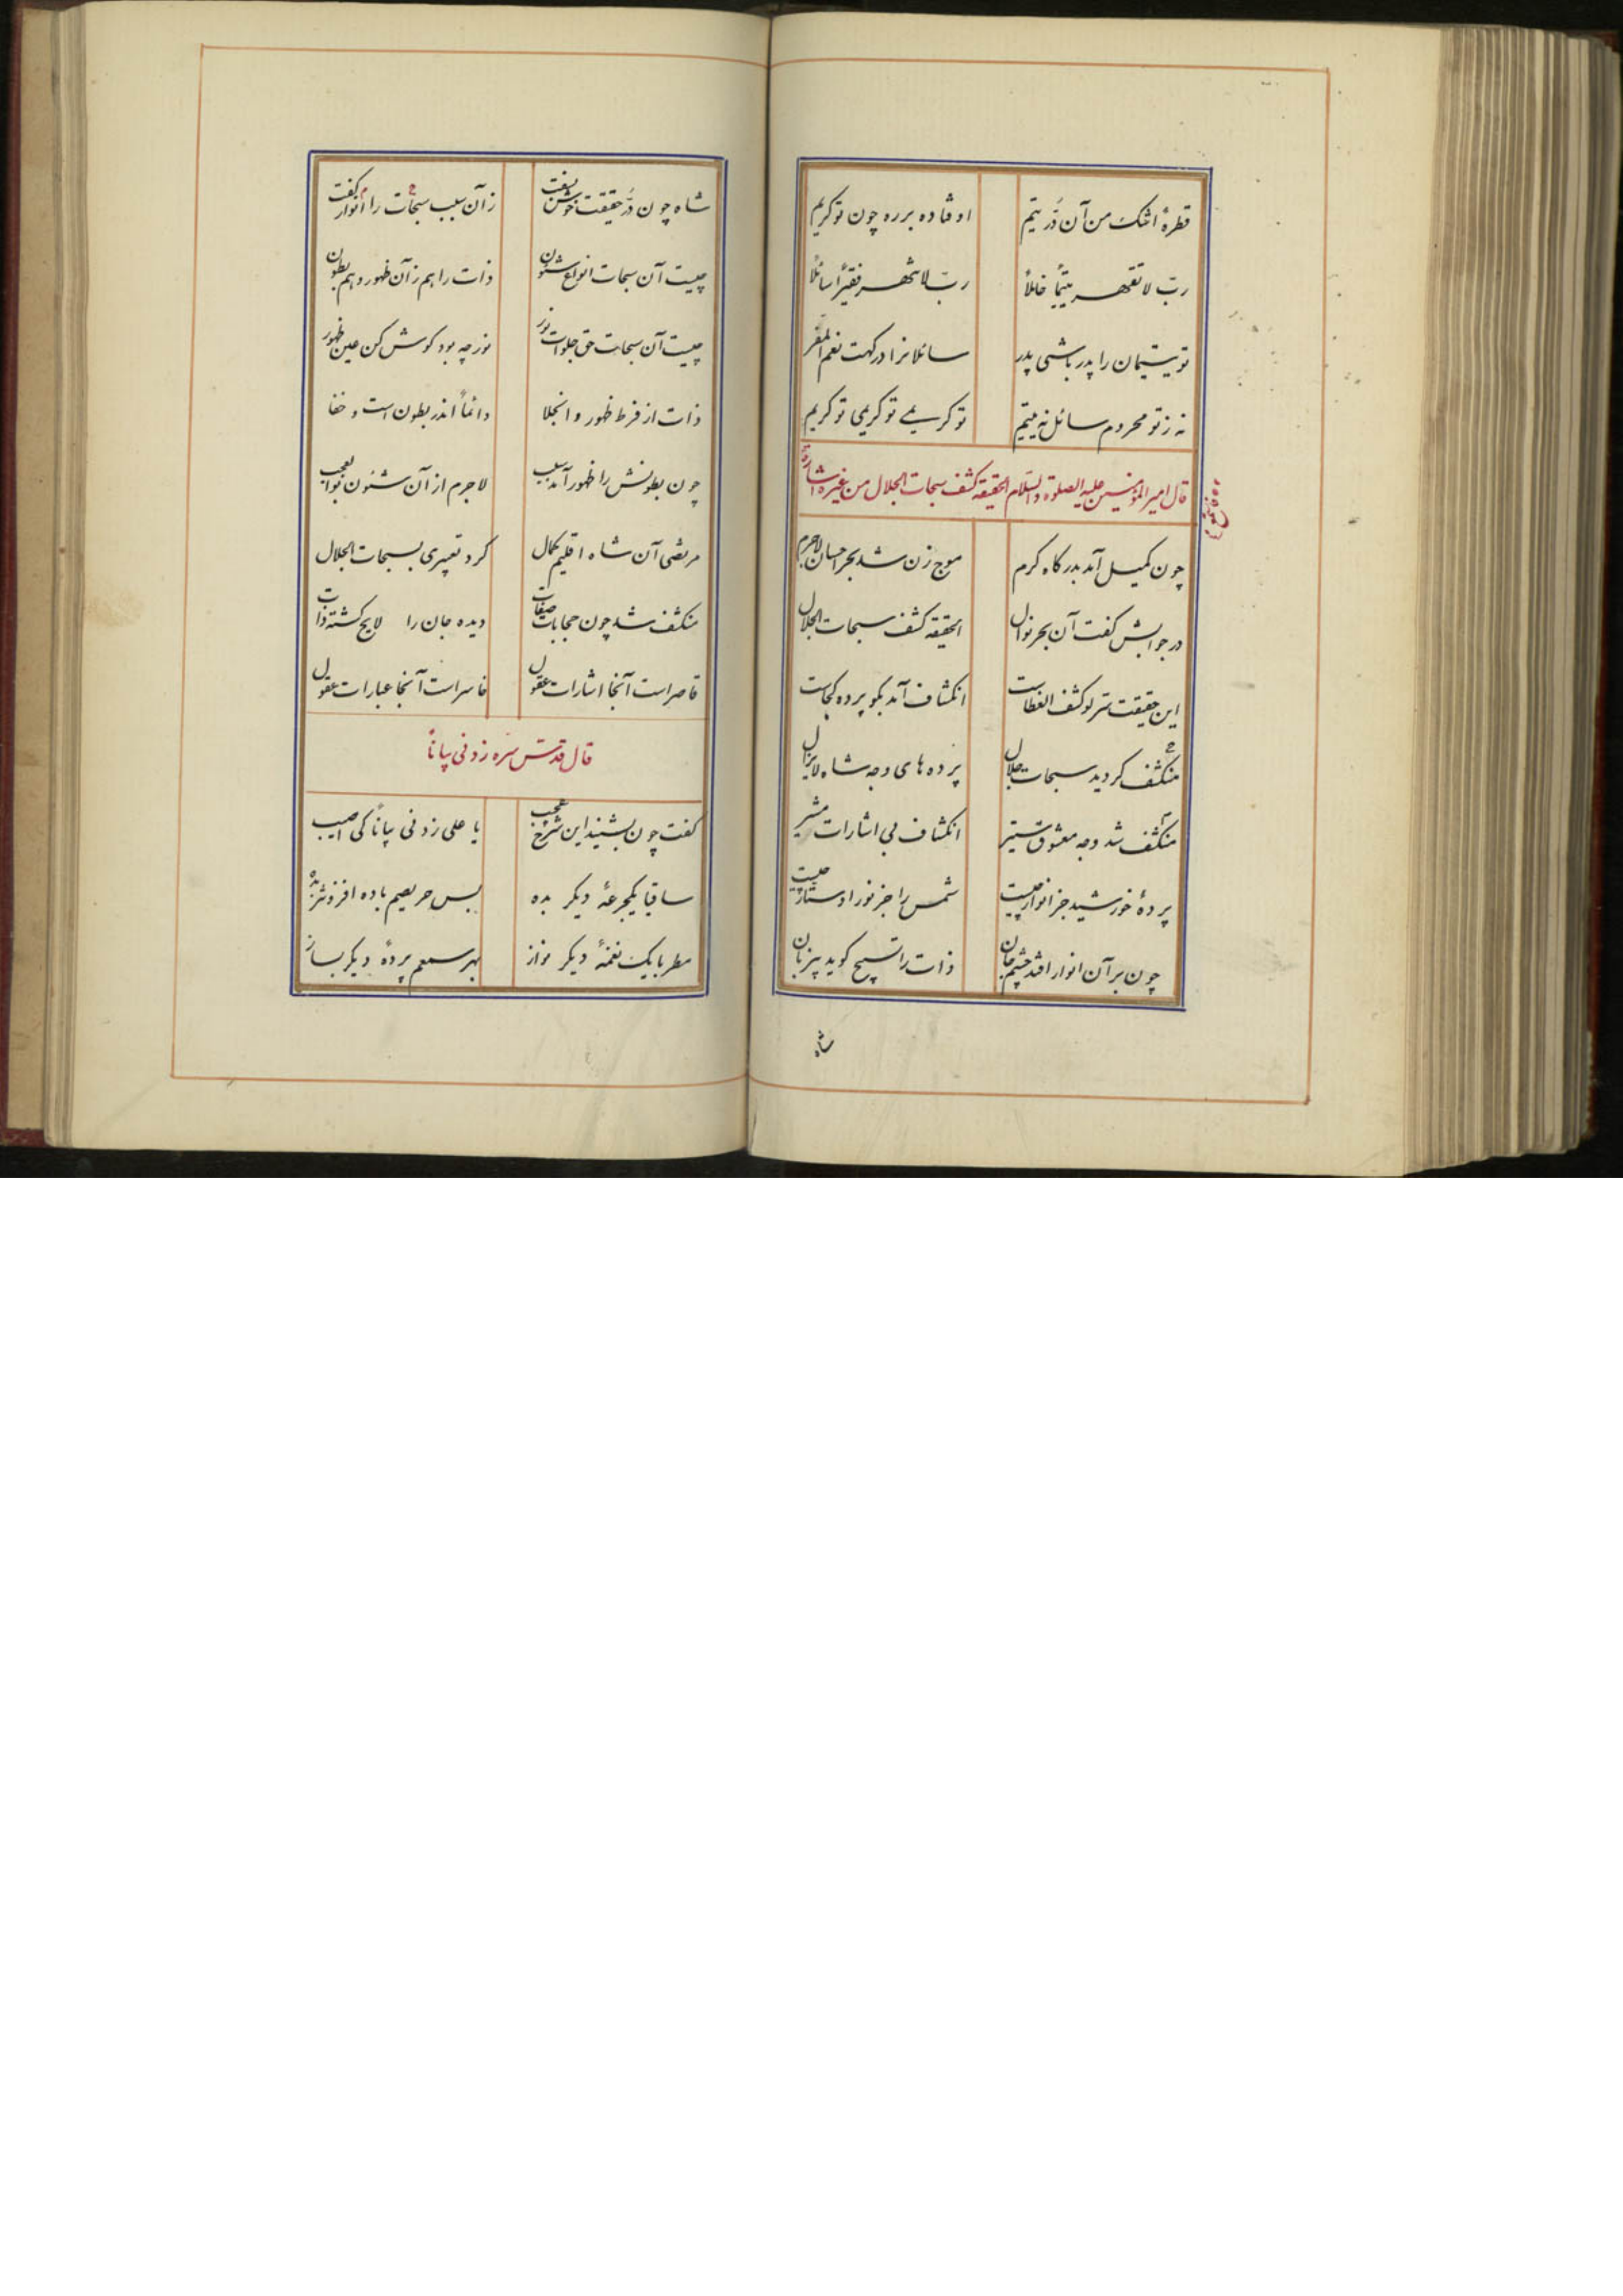 قطرهٔ اشک من آن دُرّ یتیم اوفتاده بر ره چون تو کریم
ربّ لا تقهر یتیماً خاملاً ربّ لا تنهر فقیراً سائلاً
تو یتیمان را پدر باشی پدر سائلانرا درکهت نعم المفر
نه ز تو محروم سائل نه یتیم تو کریمی تو کریمی تو کریم
قال امیر المؤمنین علیه الصلوة والسّلام الحقیقة کشف سبحات الجلال من غیر اشارة
چون کمیل آمد بدرکاه کرم موج زن شد بحر احسان لاجرم
در جوابش کفت آن بحر نوال الحقیقة کشف سبحات الجلال
این حقیقت سرّ لو کشف الغطاست انکشاف آمد بکو پرده کجاست
منکشف کردید سبحات جلال پرده های وجه شاه لایزال
منکشف شد وجه معشوق ستیر انکشاف بی اشارات مشیر
پردهٔ خورشید جز انوار چیست شمس را جز نور او ستار چیست
چون بر آن انوار افتد چشم جان ذات را تسبیح کوید بیزبان
شاه
شاه چون دُرّ حقیقت خوش بسفت زآن سبب سبحات را انوار کفت
چیست آن سبحات انواع شئون ذات را هم زآن ظهور و هم بطون
چیست آن سبحات حق جلوات نور نور چه بود کوش کن عین ظهور
ذات از فرط ظهور و انجلا دائماً اندر بطون است و خفا
چون بطونش را ظهور آمد سبب لاجرم از آن شئون بوالعجب
مرتضی آن شاه اقلیم کمال کرد تعبیری بسبحات الجلال
منکشف شد چون حجابات صفات دیده جان را لایح کشته ذات
قاصر است آنجا اشارات عقول خاسر است آنجا عبارات عقول
قال قدّس سره زدنی بیاناً
کفت چون بشنید این شرح عجب یا علی زدنی بیاناً کی اصیب
ساقیا یکجرعهٔ دیکر بده بس حریصم باده افزونتر بده
مطربا یک نغمهٔ دیکر نواز بهر سمعم پردهٔ دیکر بساز